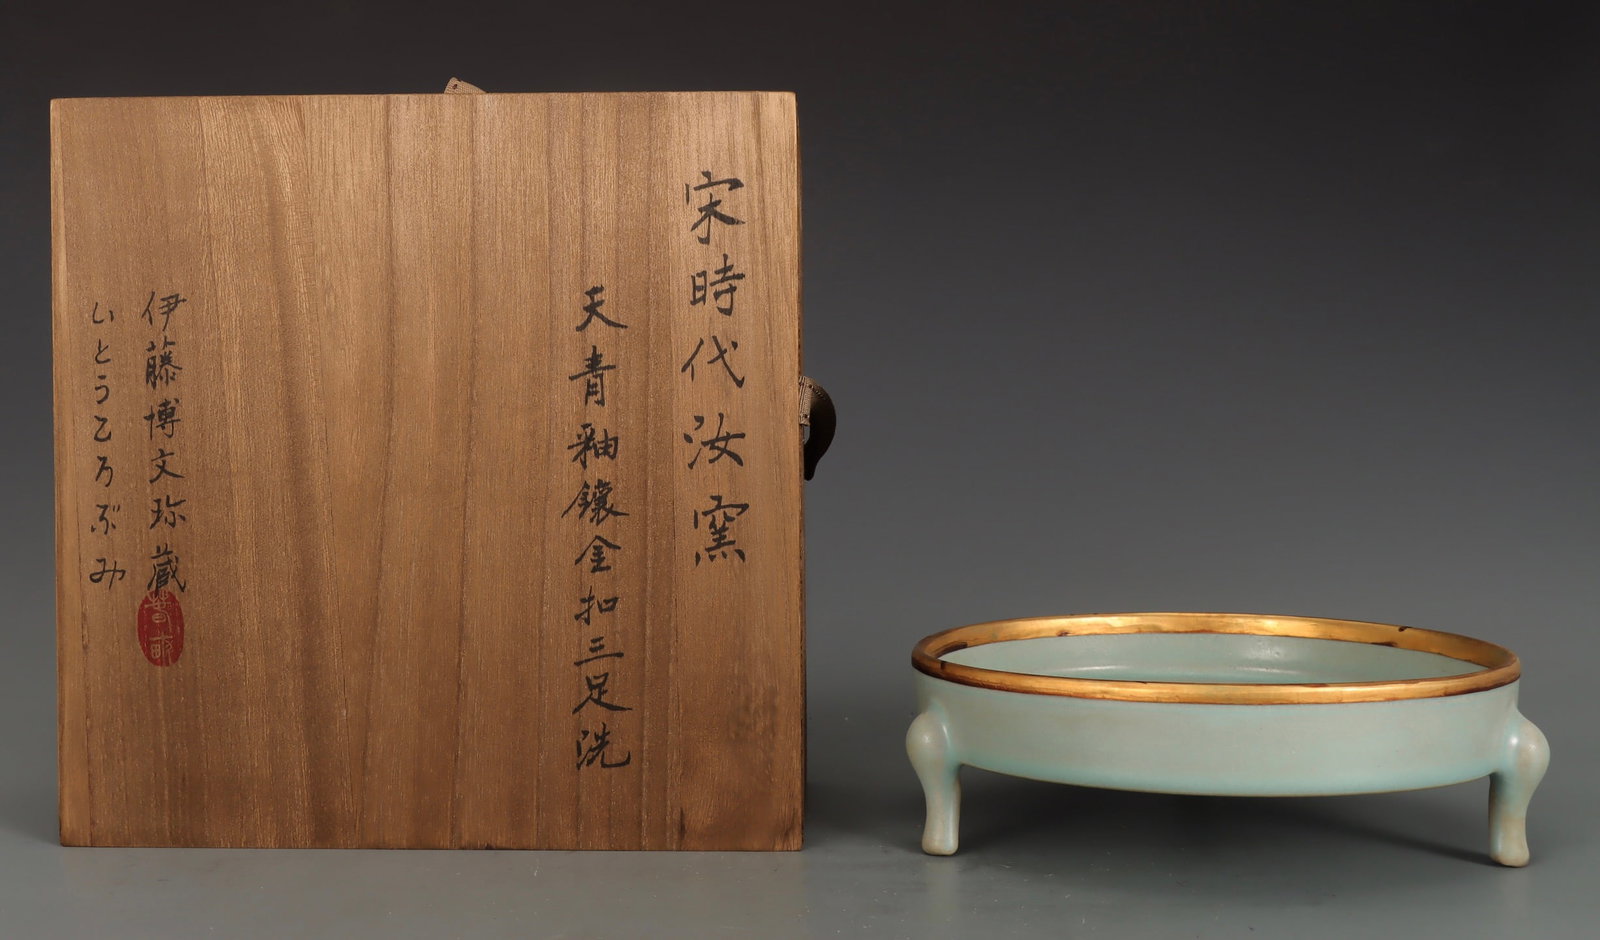 宋時代汝窯
天青釉鑲金扣三足洗
伊藤博文珎蔵
いとうころぶみ